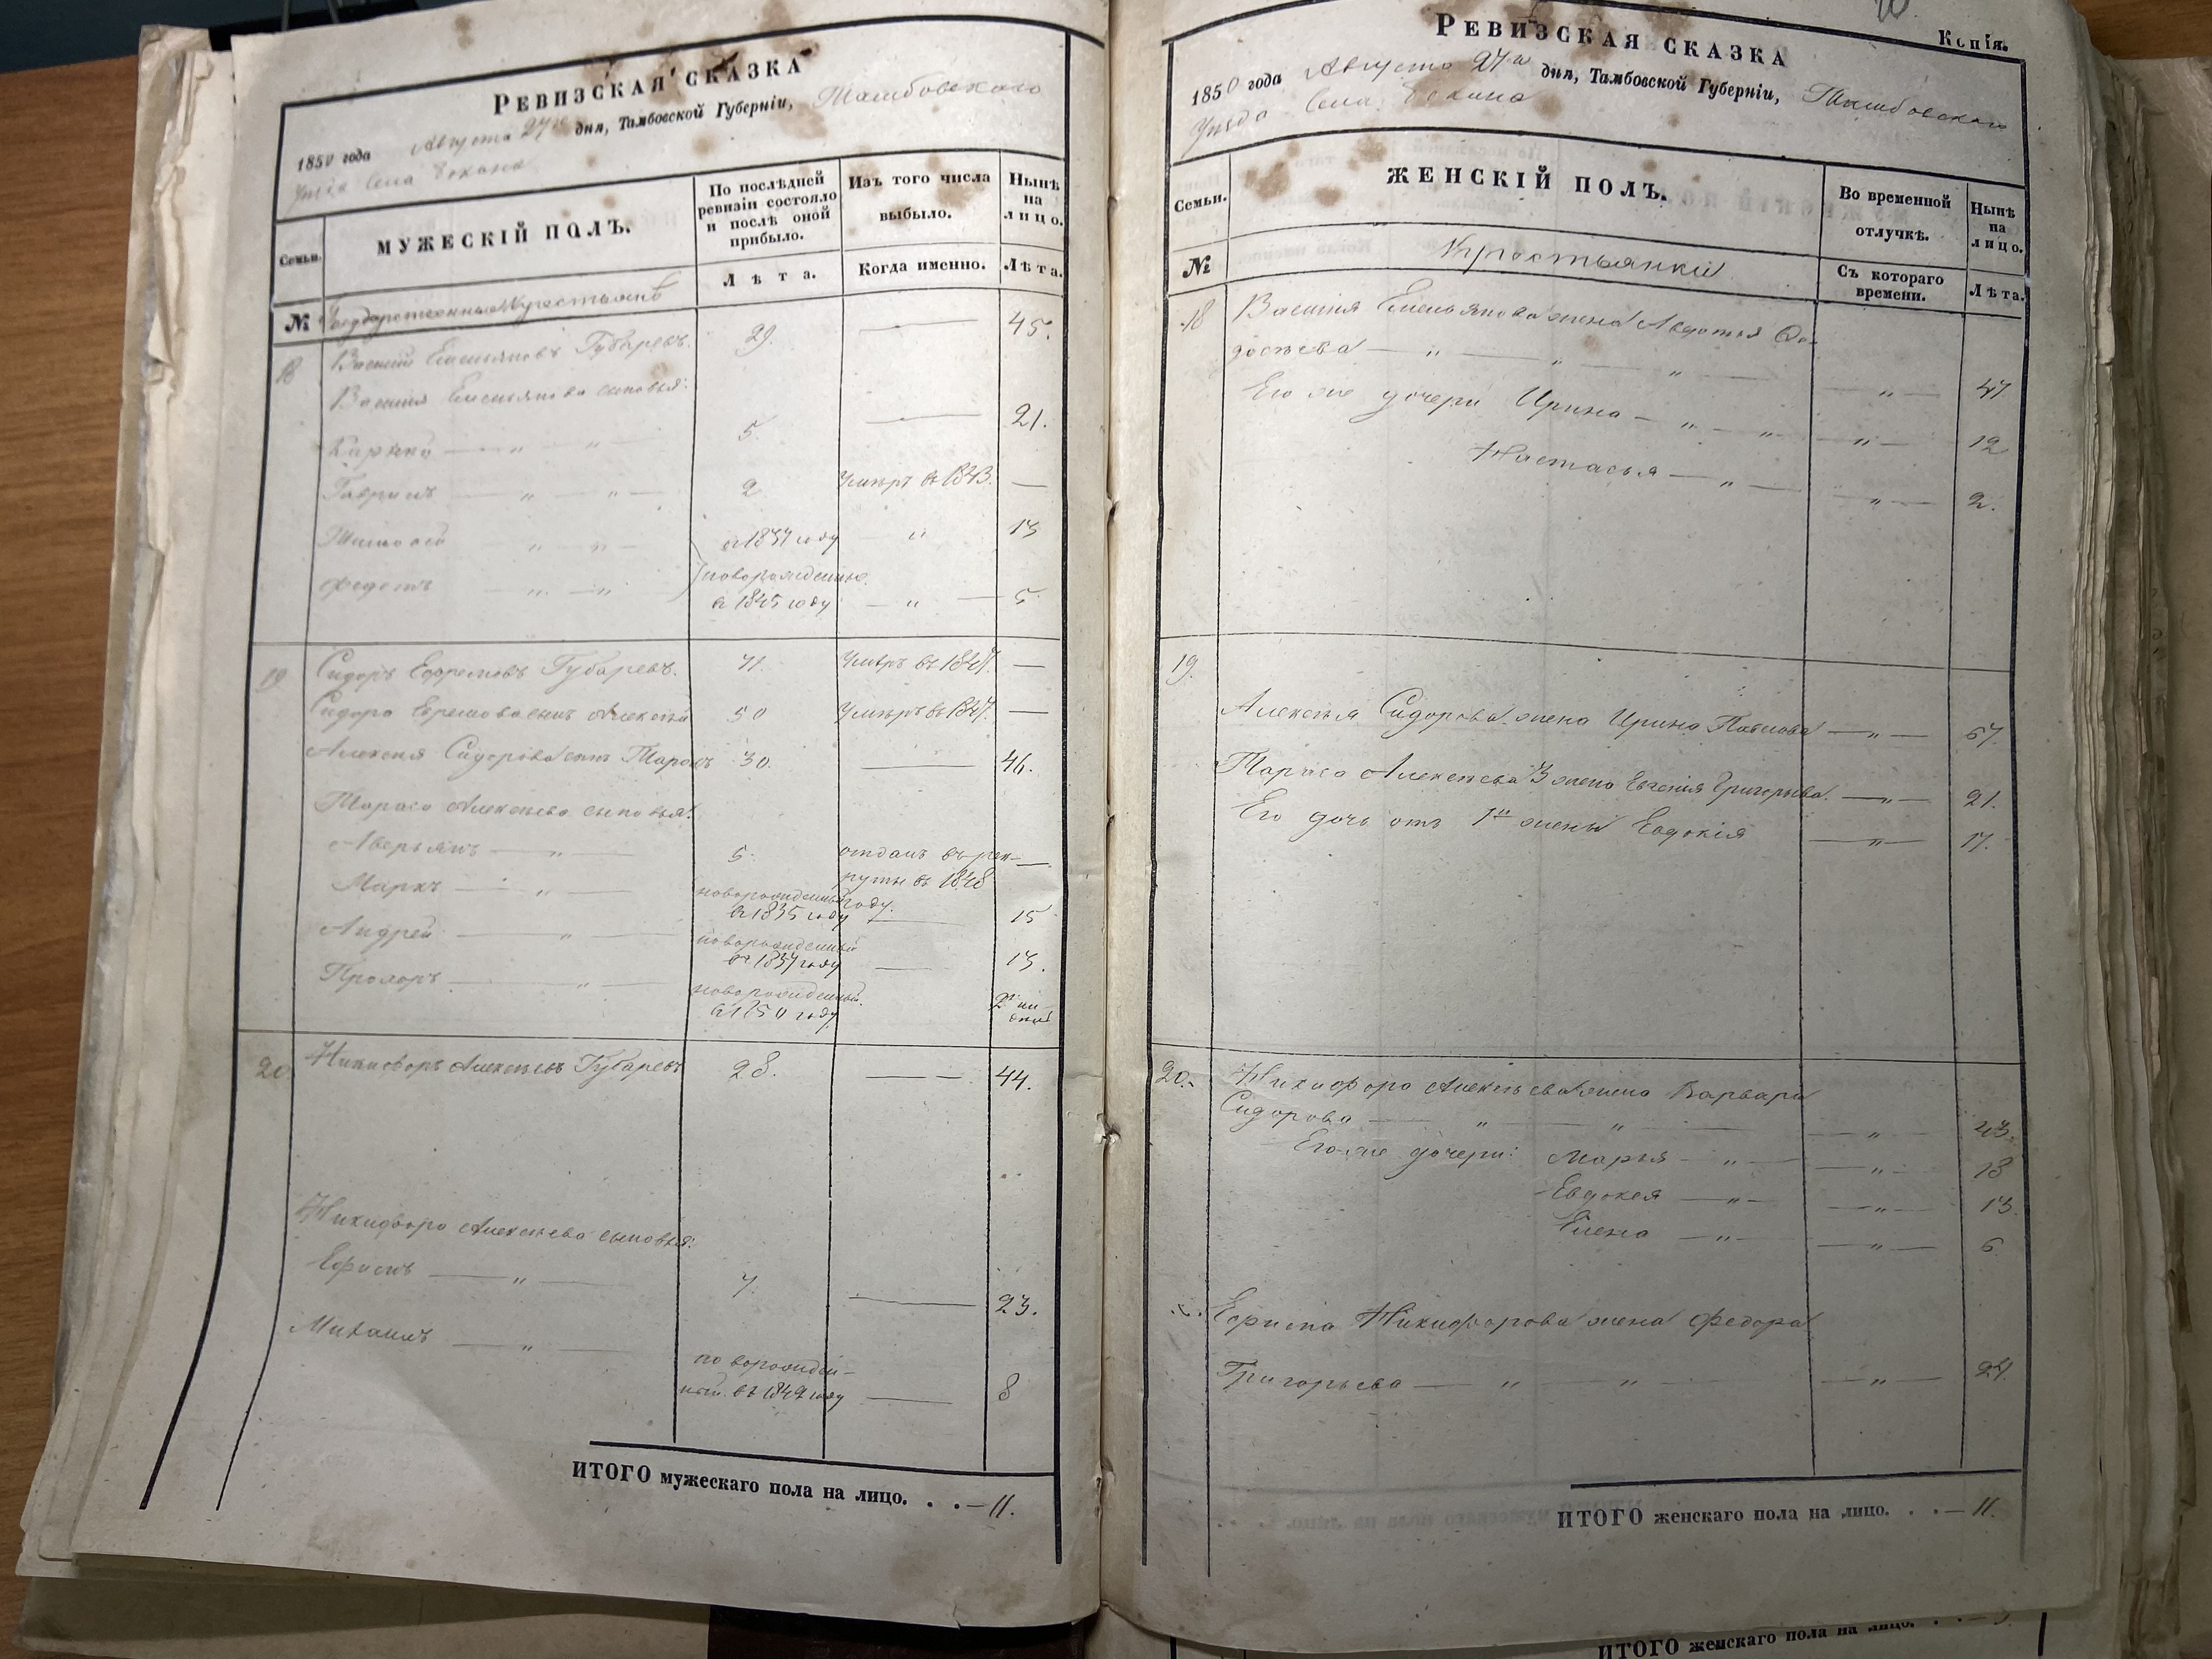 РЕВИЗСКАЯ СКАЗКА
1850 года Августа 27го дня, Тамбовской Губерніи, Тамбовскаго
Уезда Села
Семьи.
МУЖЕСКІЙ ПОЛЪ.
По послѣдней ревизіи состояло и послѣ оной прибыло.
Изъ того числа выбыло.
Нынѣ на лицо.
№
Лѣта.
Когда именно.
Лѣта.
Государственные Крестьяне
18 Василій Емельяновъ Губаревъ. 29. — 45.
Василія Емельянова сыновья:
5. — 21.
Гаврилъ — „ — „ — 2 Умеръ въ 1843. —
Тимофей „ — „ — въ 1837 году „ 13
новорожденные
Федотъ — „ — „ въ 1845 году — „ — 5
19 Сидоръ Ефремовъ Губаревъ. 71. Умеръ въ 1847. —
Сидора Ефремова сынъ Алексѣй 50 Умеръ въ 1847. —
Алексѣя Сидорова сынъ Тарасъ 30. — 46.
Тараса Алексѣева сыновья:
Аверьянъ — „ — 5. отданъ въ рек-
руты въ 1848 году. —
Маркъ — „ — новорожденный
въ 1835 году — 15
Андрей — „ — новорожденный
въ 1837 году — 13.
Прохоръ — „ — новорожденный.
въ 1850 году
20 Никифоръ Алексѣевъ Губаревъ 28. — 44.
Никифора Алексѣева сыновья:
— „ — 7. — 23.
Михаилъ — „ — новорожден-
ный въ 1842 году — 8
ИТОГО мужескаго пола на лицо. . . — 11.
Копія.
РЕВИЗСКАЯ СКАЗКА
1850 года Августа 27го дня, Тамбовской Губерніи, Тамбовскаго
Уезда Села
Семьи.
ЖЕНСКІЙ ПОЛЪ.
Во временной отлучкѣ.
Нынѣ на лицо.
№
Съ котораго времени.
Лѣта.
Крестьянки
18 Василія Емельянова жена Авдотья Фе-
досѣева — „ — „ — „ — „ — 47
Его же дочери Ирина — „ — „ — „ — 12
Настасья — „ — — „ — 2.
19.
Алексѣя Сидорова жена Ирина Павлова — „ — 67.
Тараса Алексѣева 3 жена Евгенія Григорьева. — „ — 21.
Его дочь отъ 1й жены Евдокія — „ — 17.
20. Никифора Алексѣева жена Варвара
Сидорова — „ — „ — — „ — 43.
Его же дочери: Марья — „ — — „ — 18
Евдокея — „ — — „ — 13
Елена — „ — — „ — 6.
Никифорова жена Федора
Григорьева — „ — „ — — „ — 24.
ИТОГО женскаго пола на лицо. . . — 11.
ИТОГО женскаго пола на лицо.